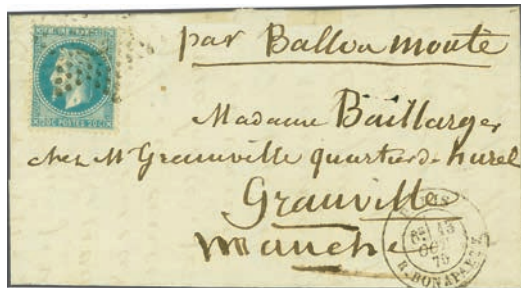 par Ballon monté
Madame Baillarger
chez Mr Grainville quartier d. hurel
Granville
Manche
POSTES 20 C
PARIS
6E 13
OCT
70
R. BONAPARTE